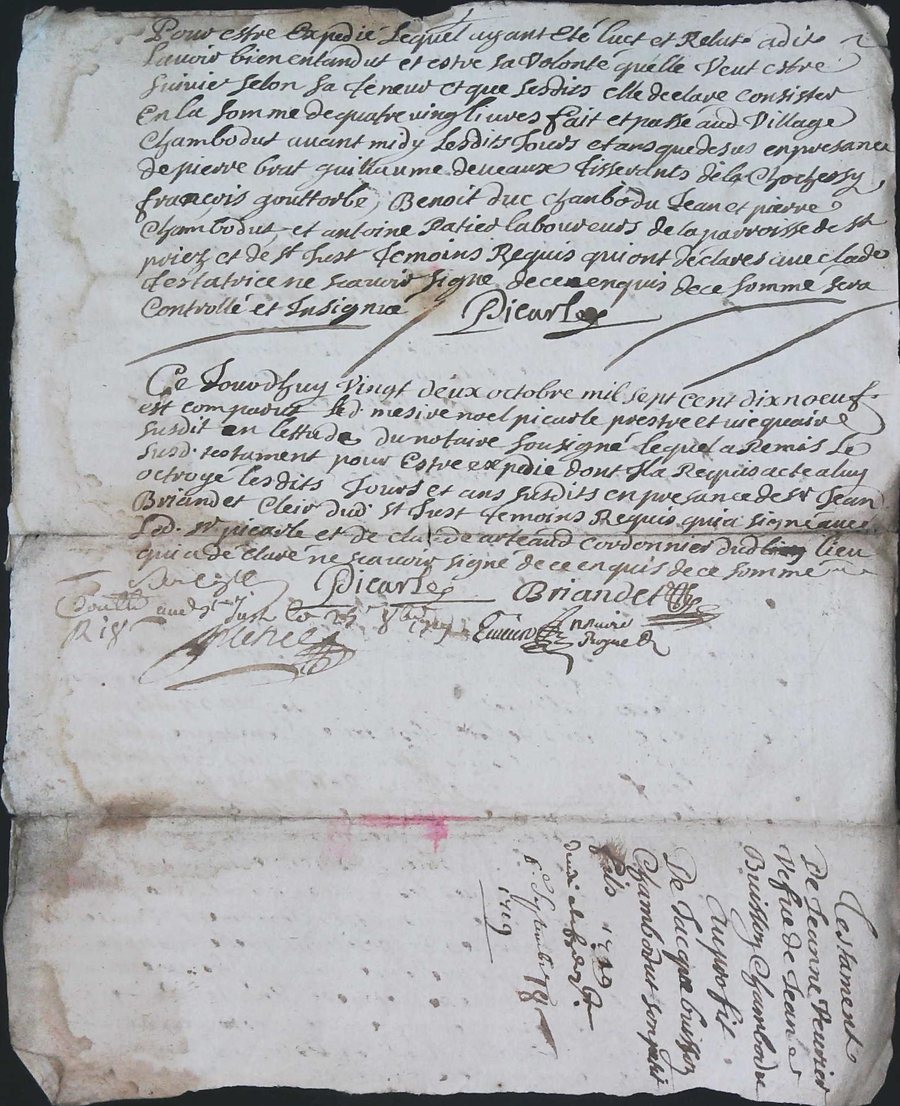 Pour estre Expedié Lequel ayant Eté luct et Relut a dit
Lavoir bien entandut et estre sa Volonté quelle Veut estre
suivie selon sa teneur et que sesdits elle declare consister
En la somme de quatre vingt livres fait et passe aud Village
Chambodut avant midy Lesdits Jours et ans que desus en presance
de pierre brat guillaume deveaux Tisserants de la
françois gouttorbe, Benoit duc chanbodu Jean et pierre
Chambodut, et antoine Patier laboureurs de la parroisse de st
priez et de st Just temoins Requis qui ont declares avec lade
testatrice ne scavoir signe de ce enquis de ce somme sera
Controllé et Insignué Picarle
Ce Jourdhuy Vingt deux octobre mil sept cent dix noeuf
est comparut led. mesire noel picarle prestre et viequaire
susdit en lestude du notaire sousigné lequel a Remis Le
susd. testament pour Estre expedie dont Jl a Requis acte a luy
octrogé lesdits Jours et ans susdits en presance de sr Jean
Briandet Cleir dud. st Just temoins Requis qui a signé avec
Led. sr picarle et de claude arteaud cordonnier dud lieu
qui a declaré ne scavoir signé de ce enquis de ce somme
Picarle Briandet
notaire
Testament
De Jeanne
Vefve de Jean
Buisson Chambodu
Au profit
De Jacque buisson
Chambodut son fils
1719
Septembre
1719